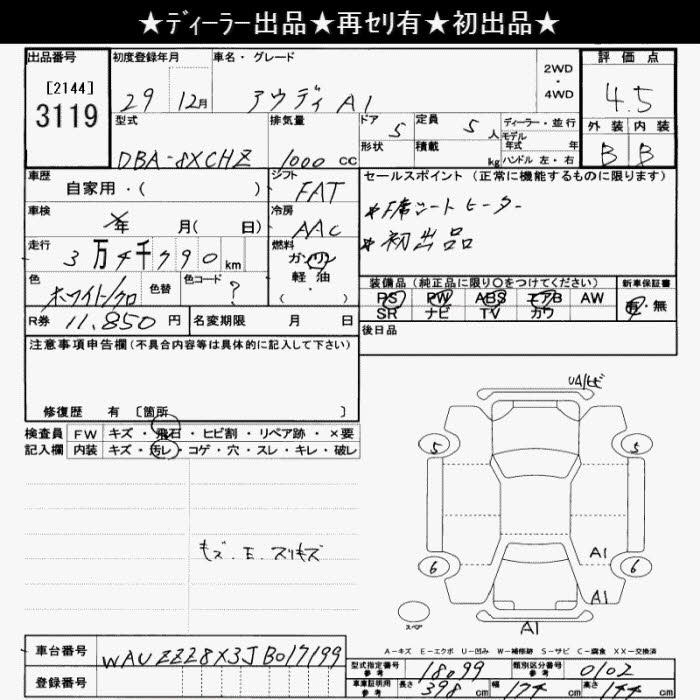 ★ディーラー出品★再セリ有★初出品★
出品番号 初度登録年月 車名・グレード 2WD・4WD 評価点
[2144] 3119 29 12月 アウディ A1 4.5
型式 排気量 ドア 5 定員 5 人 ディーラー・並行 外装 内装
DBA-8XCHZ 1000 cc 形状 積載 kg モデル年式 年 ハンドル 左・右 B B
車歴 シフト セールスポイント (正常に機能するものに限ります)
自家用・( ) FAT
車検 年 月( 日) 冷房 AAC
*初出品
走行 3万4千790km 燃料 ガソリン 軽・油 ( )
色 ホワイト/クロ 色替 色コード ?
装備品 (純正品に限り○をつけてください) 新車保証書
PS PW ABS エアB AW 有・無
SR ナビ TV カワ
R券 11,850 円 名変期限 月 日 後日品
注意事項申告欄(不具合内容等は具体的に記入して下さい)
修復歴 有 [箇所 ]
検査員 FW キズ・飛石・ヒビ割・リペア跡・×要
記入欄 内装 キズ・汚レ・コゲ・穴・スレ・キレ・破レ
5 5
A1
6 6
A1
スペア A1
A-キズ E-エクボ U-凹み W-補修跡 S-サビ C-腐食 XX-交換済
車台番号 WAUZZZ8X3JB017199
型式指定番号 参考 18099 類別区分番号 参考 0102
登録番号 車庫証明用 参考 長さ 398 cm 幅 174 cm 高さ 144 cm